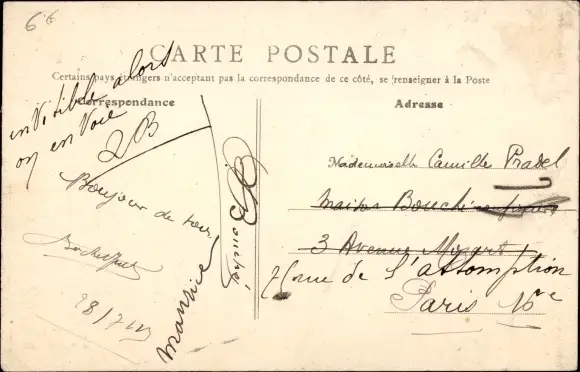 66
CARTE POSTALE
Certains pays étrangers n'acceptant pas la correspondance de ce côté, se renseigner à la Poste
Correspondance
Adresse
invisible alors
on en voie
2 B
Bonjour de tous
Maurice
Bouché
Mademoiselle Camille Pradel
Maison Bouché
3 Avenue
rue de l'assomption
Paris 16e